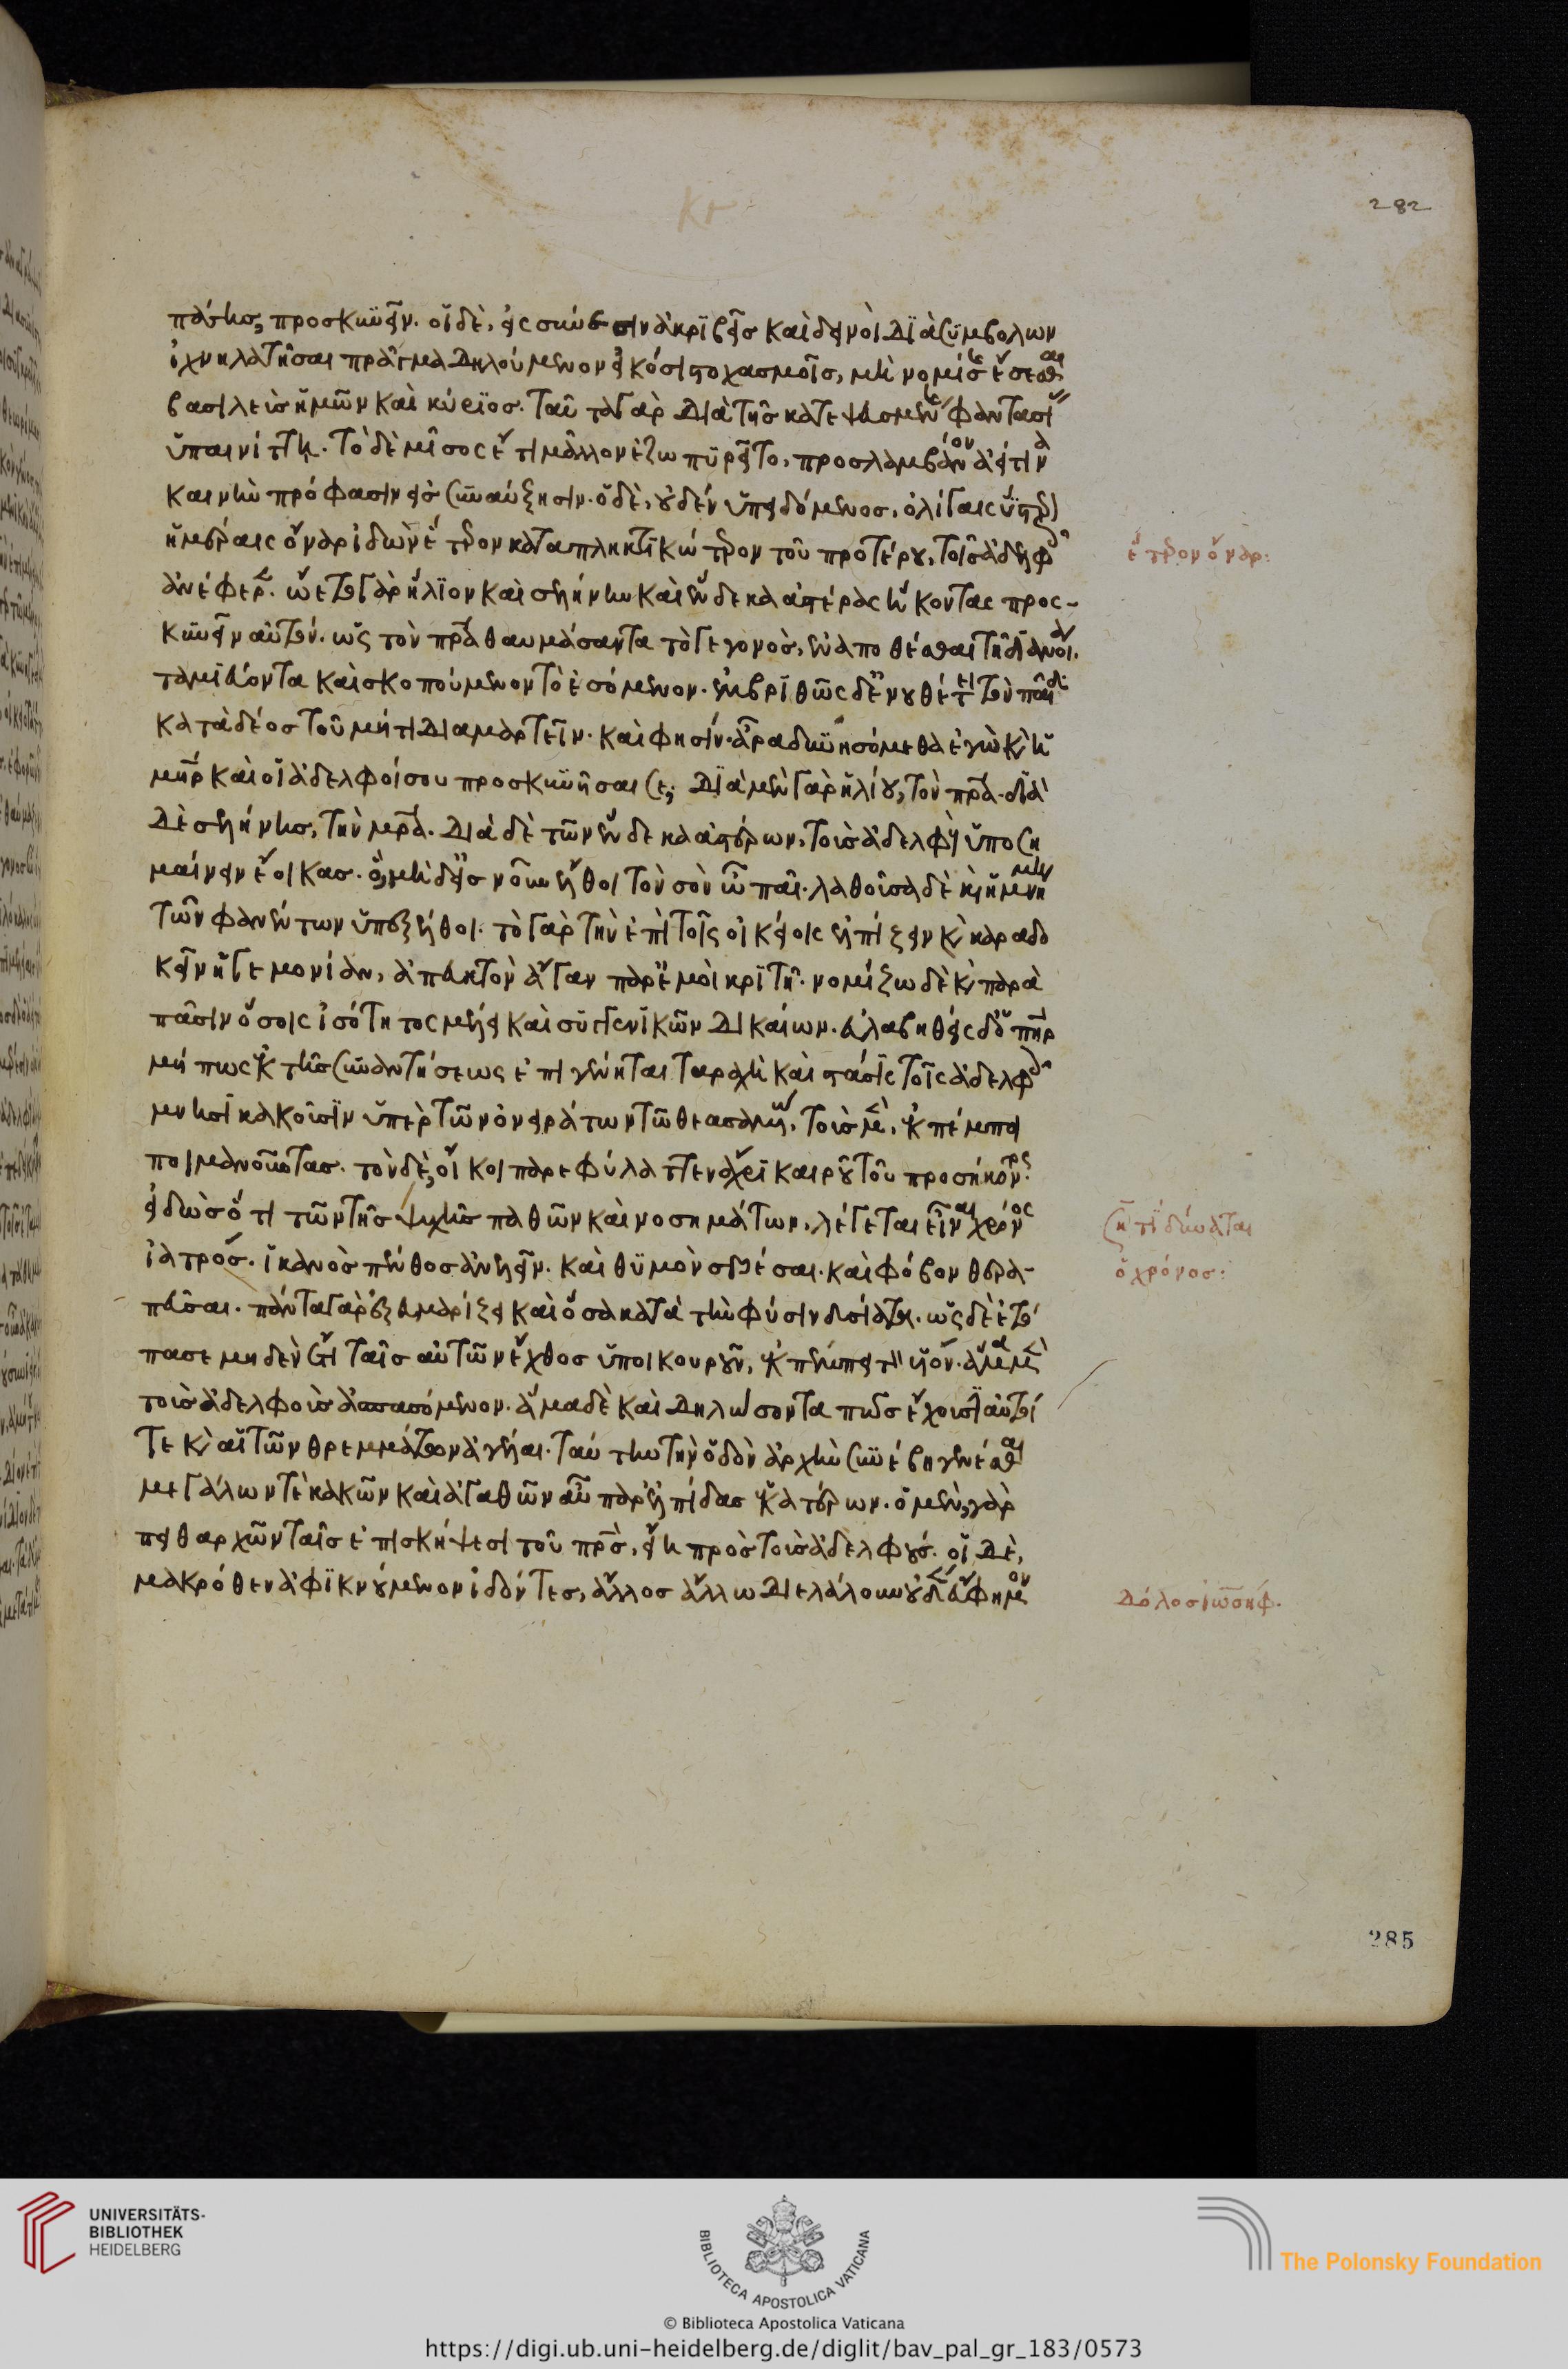 πάσης, προσκυνεῖν. οἱ δὲ, εἰς συνεσιν ἀκριβεῖς καὶ δεινοὶ διὰ συμβόλων
ἰχνηλατῆσαι πρᾶγμα δηλούμενον εἰκόσι στοχασμοῖς, μὴ νομίσῃς ἔσεσθαι
βασιλεὺς ἡμῶν καὶ κύριος. ταῦτα γὰρ διὰ τῆς κατεψευσμένης φαντασίας
ὑπαινίττῃ. τὸ δὲ μῖσος ἔτι μᾶλλον ἐζωπυρεῖτο, προσλαμβάνον ἀεί τινὰ
καινὴν πρόφασιν εἰς συναύξησιν. ὁ δὲ, οὐδὲν ὑπειδόμενος, ὀλίγαις ὕστερον
ἡμέραις ὄναρ ἰδὼν ἕτερον καταπληκτικώτερον τοῦ προτέρου, τοῖς ἀδελφοῖς
ἀνέφερεν. ᾤετο γὰρ ἥλιον καὶ σελήνην καὶ ἕνδεκα ἀστέρας ἥκοντας προσ-
κυνεῖν αὐτόν. ὡς τὸν πρα θαυμάσαντα τὸ γεγονὸς, ἐναποθέσθαι τῇ διανοίᾳ.
ταμιεύοντα καὶ σκοπούμενον τὸ ἐσόμενον. ἐμβριθῶς δ' ἐνουθέτει τὸν παῖδα
κατὰ δέος τοῦ μή τι διαμαρτεῖν. καὶ φησίν. ἆρα δυνησόμεθα ἐγὼ καὶ ἡ
μηρ καὶ οἱ ἀδελφοί σου προσκυνῆσαι σε; διὰ μὲν γὰρ ἡλίου, τὸν πρα. διὰ
δὲ σελήνης, τὴν μρα. διὰ δὲ τῶν ἕνδεκα ἀστέρων, τοὺς ἀδελφοὺς ὑποση
μαίνειν ἔοικας. ὃ, μὴ δ' εἰς νοῦν ἔλθοι τὸν σὸν ὦ παῖ. λαθοῦσα δὲ καὶ ἡ μνήμη
τῶν φανέντων ὑπεξέλθοι. τὸ γὰρ τὴν ἐπὶ τοῖς οἰκείοις ἐλπίζειν καὶ καραδο
κεῖν ἡγεμονίαν, ἀπευκτὸν ἄγαν παρ' ἐμοὶ κριτῇ. νομίζω δὲ καὶ παρὰ
πᾶσιν ὅσοις ἰσότητος μέλει καὶ συγγενικῶν δικαίων. εὐλαβηθεὶς δ' ὁ πηρ
μή πως ἐκ τῆς συναντήσεως ἐπιγένηται ταραχὴ καὶ στάσις τοῖς ἀδελφοῖς
μνησικακοῦσιν ὑπὲρ τῶν ὀνειράτων τῶ θεασαμένω, τοὺς μὲν, ἐκπέμπει
ποιμανοῦντας. τὸν δὲ, οἴκοι παρεφύλαττεν ἄχρι καιροῦ τοῦ προσήκοντος.
εἰδὼς ὅτι τῶν τῆς ψυχῆς παθῶν καὶ νοσημάτων, λέγεται εἶναι χρόνος
ἰατρός. ἱκανὸς πένθος ἀνελεῖν. καὶ θυμὸν σβέσαι. καὶ φόβον θερα-
πεῦσαι. πάντα γὰρ ἐξευμαρίζει καὶ ὅσα κατὰ τὴν φύσιν δυσίατα. ὡς δὲ ἐτό
πασε μηδὲν ἔτι ταῖς αὐτῶν ἔχθος ὑποικουροῦν, ἐκπέμπει τὸν υἱόν. ἅμα μὲν
τοὺς ἀδελφοὺς ἀσπασόμενον. ἅμα δὲ καὶ δηλώσοντα πῶς ἔχουσιν αὐτοί
τε καὶ αἱ τῶν θρεμμάτων ἀγέλαι. ταύτην τὴν ὁδὸν ἀρχὴν συνέβη γενέσθαι
μεγάλων τὲ κακῶν καὶ ἀγαθῶν αὖ παρ' ἐλπίδας ἑκατέρων. ὁ μὲν, γὰρ
πειθαρχῶν ταῖς ἐπισκήψεσι τοῦ πρς, ᾔει πρὸς τοὺς ἀδελφούς. οἱ δὲ,
μακρόθεν ἀφικνούμενον ἰδόντες, ἄλλος ἄλλω διελάλουν οὐδὲν εὔφημον
ἕτερον ὄναρ:
ση τί δύναται
ὁ χρόνος:
δόλος ἰωσήφ.
282
285
UNIVERSITÄTS-
BIBLIOTHEK
HEIDELBERG
BIBLIOTECA APOSTOLICA VATICANA
The Polonsky Foundation
© Biblioteca Apostolica Vaticana
https://digi.ub.uni-heidelberg.de/diglit/bav_pal_gr_183/0573